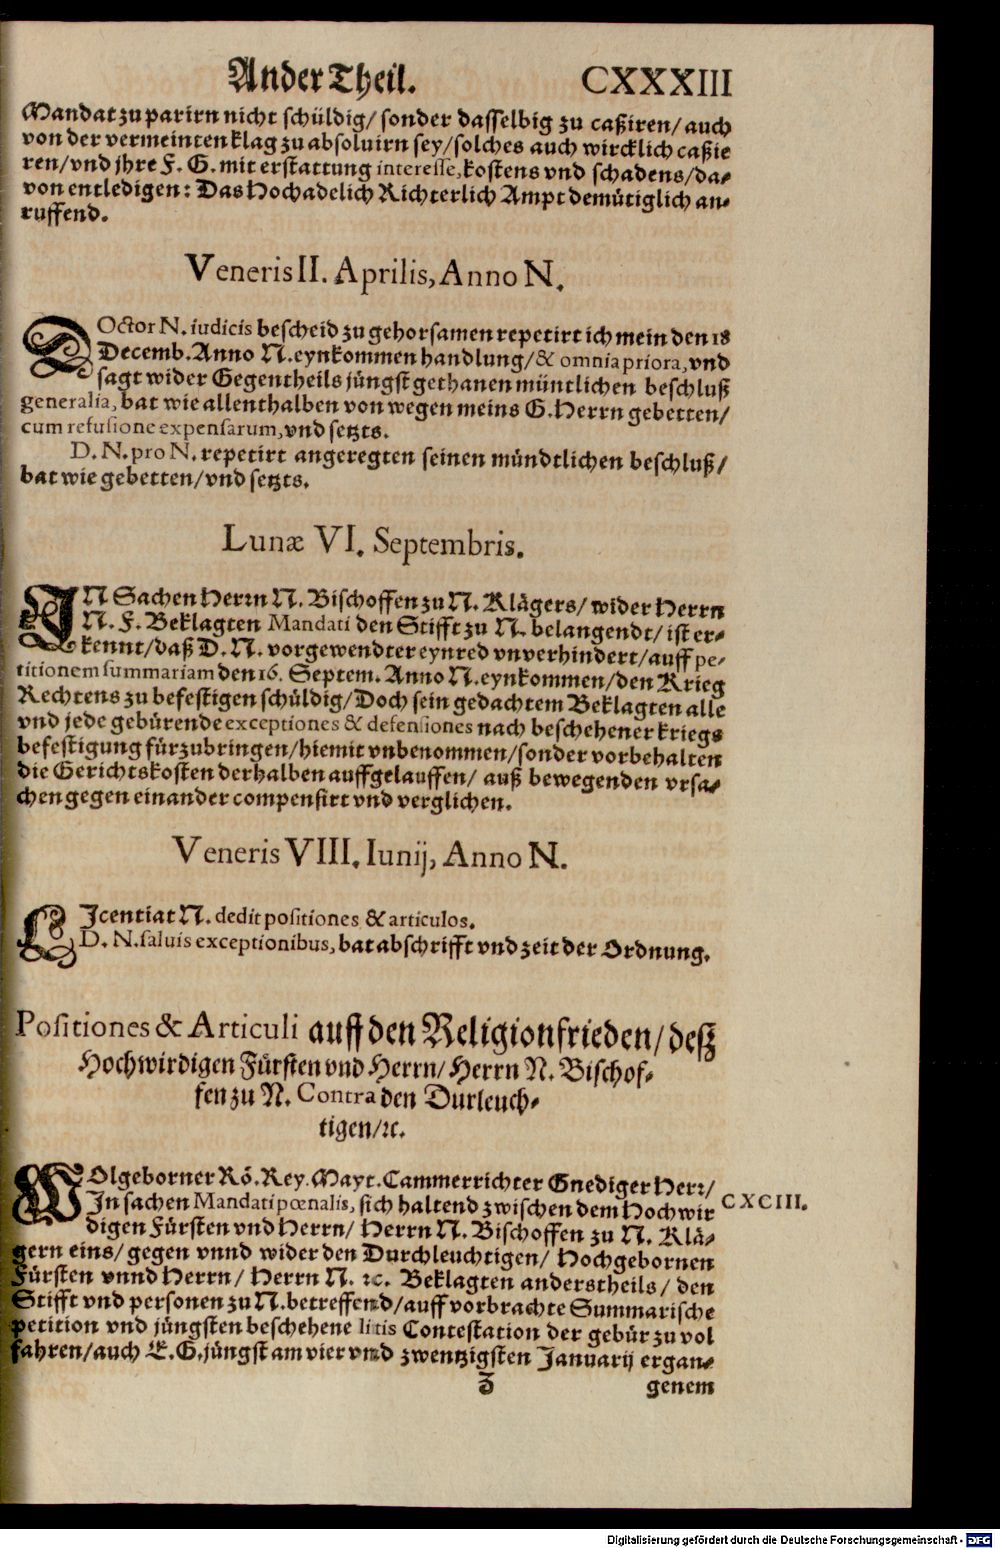 Ander Theil. CXXXIII
Mandat zu parirn nicht schüldig/ sonder dasselbig zu caßiren/ auch
von der vermeinten klag zu absoluirn sey/ solches auch wircklich caßie
ren/ vnd jhre F. G. mit erstattung interesse, kostens vnd schadens/ da-
von entledigen: Das Hochadelich Richterlich Ampt demütiglich an-
ruffend.
Veneris II. Aprilis, Anno N.
DOctor N. iudicis bescheid zu gehorsamen repetirt ich mein den 18
Decemb. Anno N. eynkommen handlung/ & omnia priora, vnd
sagt wider Gegentheils jüngst gethanen müntlichen beschluß
generalia, bat wie allenthalben von wegen meins G. Herrn gebetten/
cum refusione expensarum, vnd setzts.
D. N. pro N. repetirt angeregten seinen mündtlichen beschluß/
bat wie gebetten/ vnd setzts.
Lunæ VI. Septembris.
IN Sachen Herrn N. Bischoffen zu N. Klägers/ wider Herrn
N. F. Beklagten Mandati den Stifft zu N. belangendt/ ist er-
kennt/ daß D. N. vorgewendter eynred vnverhindert/ auff pe-
titionem summariam den 16. Septem. Anno N. eynkommen/ den Krieg
Rechtens zu befestigen schüldig/ Doch sein gedachtem Beklagten alle
vnd jede gebürende exceptiones & defensiones nach beschehener kriegs
befestigung fürzubringen/ hiemit vnbenommen/ sonder vorbehalten
die Gerichtskosten derhalben auffgelauffen/ auß bewegenden vrsa-
chen gegen einander compensirt vnd verglichen.
Veneris VIII. Iunij, Anno N.
LIcentiat N. dedit positiones & articulos.
D. N. saluis exceptionibus, bat abschrifft vnd zeit der Ordnung.
Positiones & Articuli auff den Religionfrieden/ deß
Hochwirdigen Fürsten vnd Herrn/ Herrn N. Bischof-
fen zu N. Contra den Durleuch-
tigen/ ꝛc.
WOlgeborner Rö. Key. Mayt. Cammerrichter Gnediger Herr/
In sachen Mandati pœnalis, sich haltend zwischen dem Hochwir CXCIII.
digen Fürsten vnd Herrn/ Herrn N. Bischoffen zu N. Klä-
gern eins/ gegen vnnd wider den Durchleuchtigen/ Hochgebornen
Fürsten vnnd Herrn/ Herrn N. ꝛc. Beklagten anderstheils/ den
Stifft vnd personen zu N. betreffend/ auff vorbrachte Summarische
petition vnd jüngsten beschehene litis Contestation der gebür zu vol
fahren/ auch E. G. jüngst am vier vnd zwentzigsten Januarij ergan-
Z genem
Digitalisierung gefördert durch die Deutsche Forschungsgemeinschaft - DFG